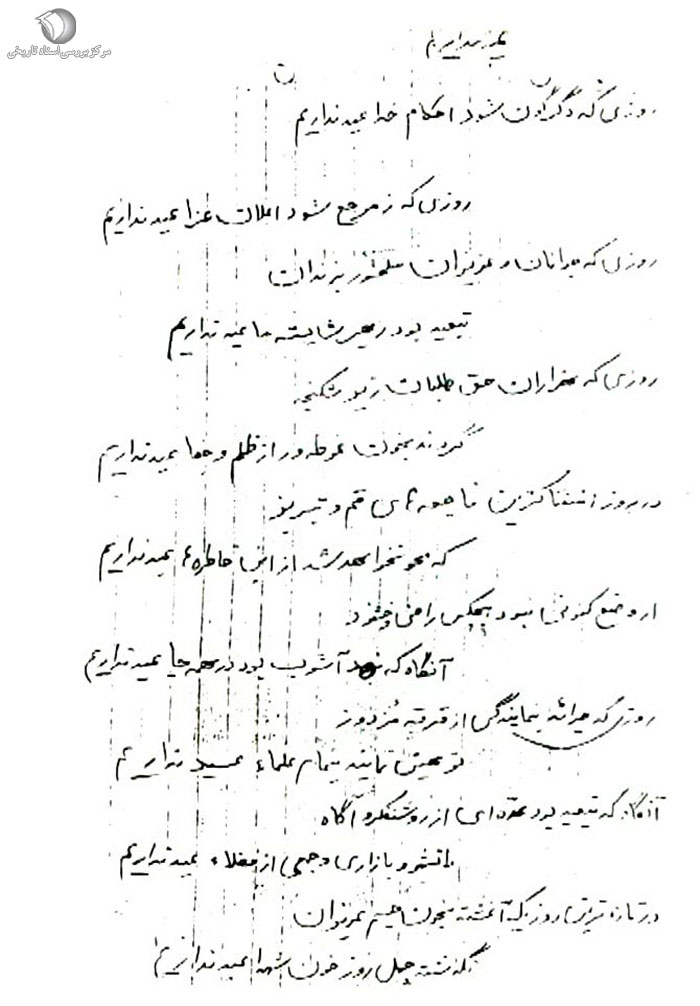 مرکز بررسی اسناد تاریخی
عید نداریم
روزی که دگرگون شود احکام خدا عید نداریم
روزی که ز مرجع شود اعلان عزا عید نداریم
روزی که جوانان و عزیزان به زندان
تبعید بود رهبر شایسته ما عید نداریم
روزی که هزاران حق طلبان زیر شکنجه
گردند بخون غوطه ور از ظلم و جفا عید نداریم
در روز اسفناکترین فاجعه های قم و تبریز
که محو نخواهد شد از این خاطره ها عید نداریم
از وضع کنونی نبود هیچکس راضی و خشنود
آنگاه که آشوب بود در همه جا عید نداریم
روزی که جرائد بنمایندگی از فرقه مزدور
توهین نمایند بتمام علماء عید نداریم
آنگاه که تبعید بود عده ای از روشنفکر و آگاه
دانشجو بازاری و جمعی از فضلاء عید نداریم
در تازه ترین روز که آغشته بخون جسم عزیزان
بگذشته چهل روز خون شهدا عید نداریم